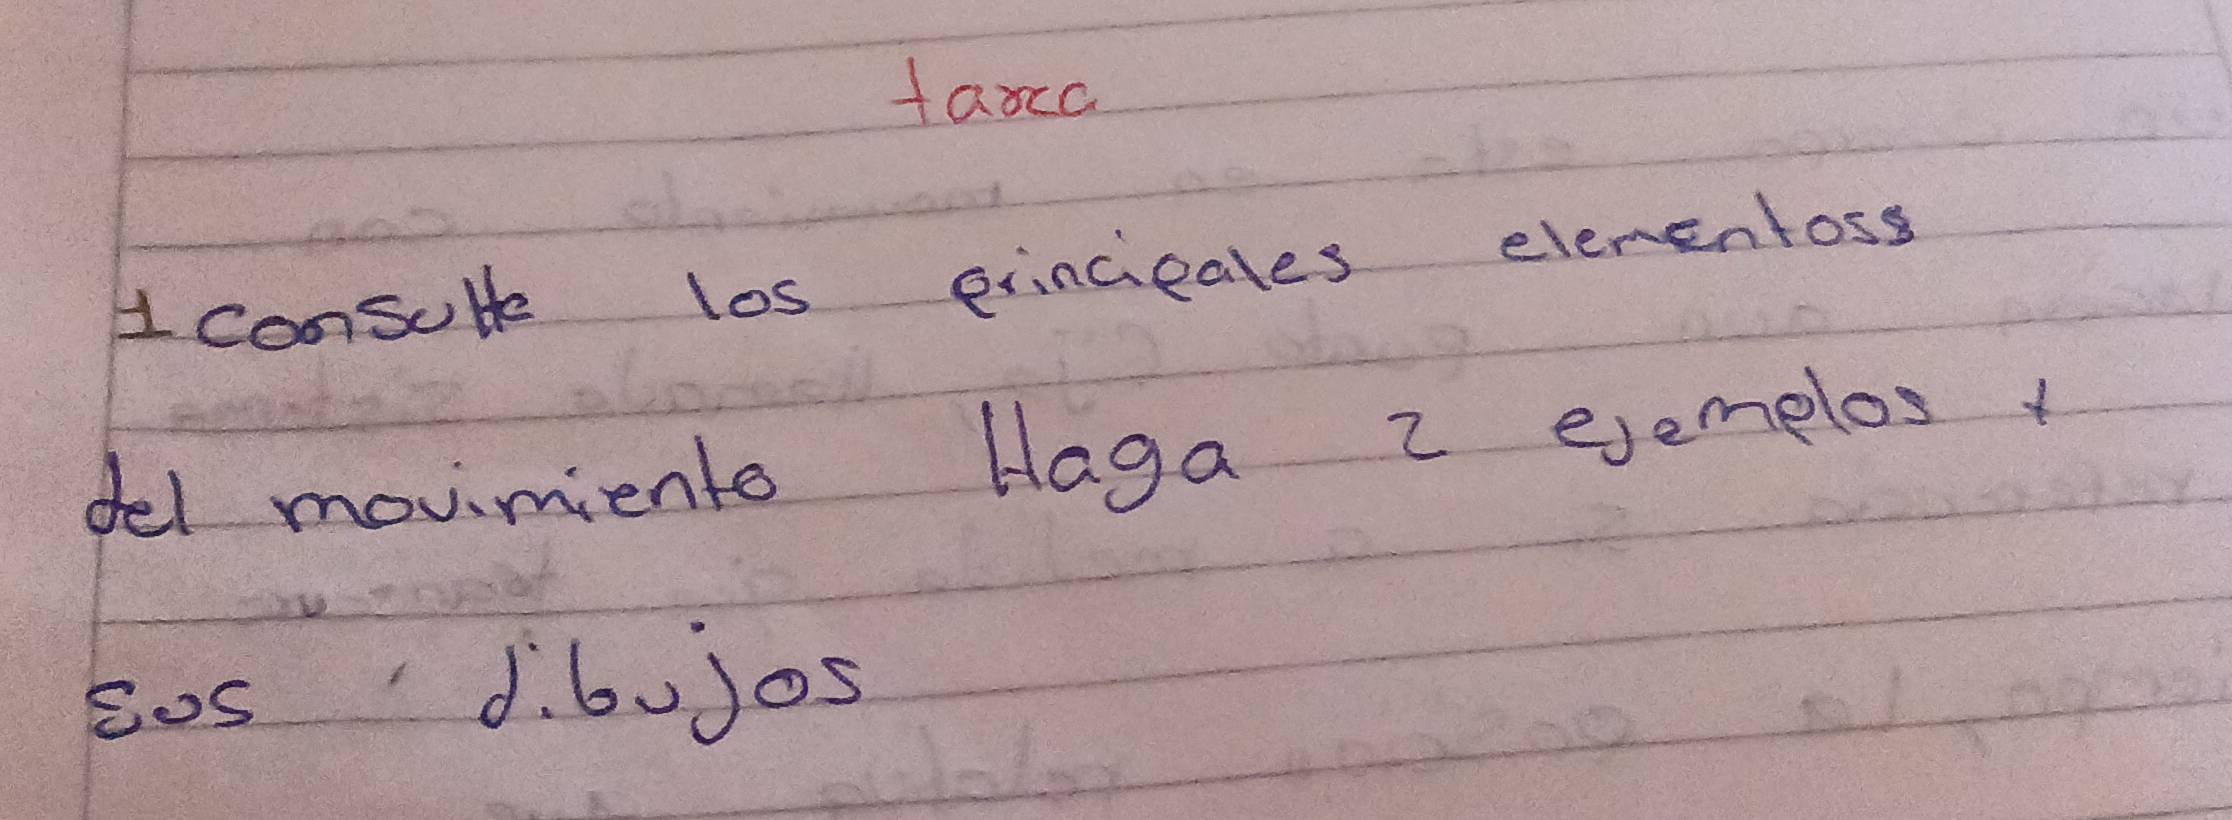 tarea
1 consulte los principales elementoss
del movimiento Haga 2 ejemplos y
sus dibujos